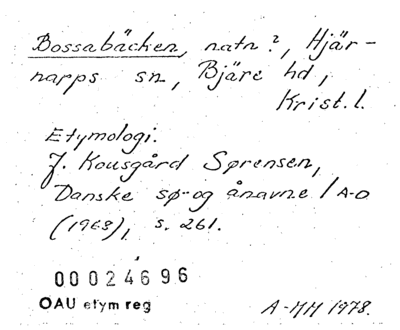 Bossabäcken, natn?, Hjär-
napps sn, Bjäre hd,
Krist. l.
Etymologi.
J. Kousgård Sørensen,
Danske sø- og ånavne 1 A-D
(1968), s. 261.
00024696
OAU etym reg
A-MH 1978.